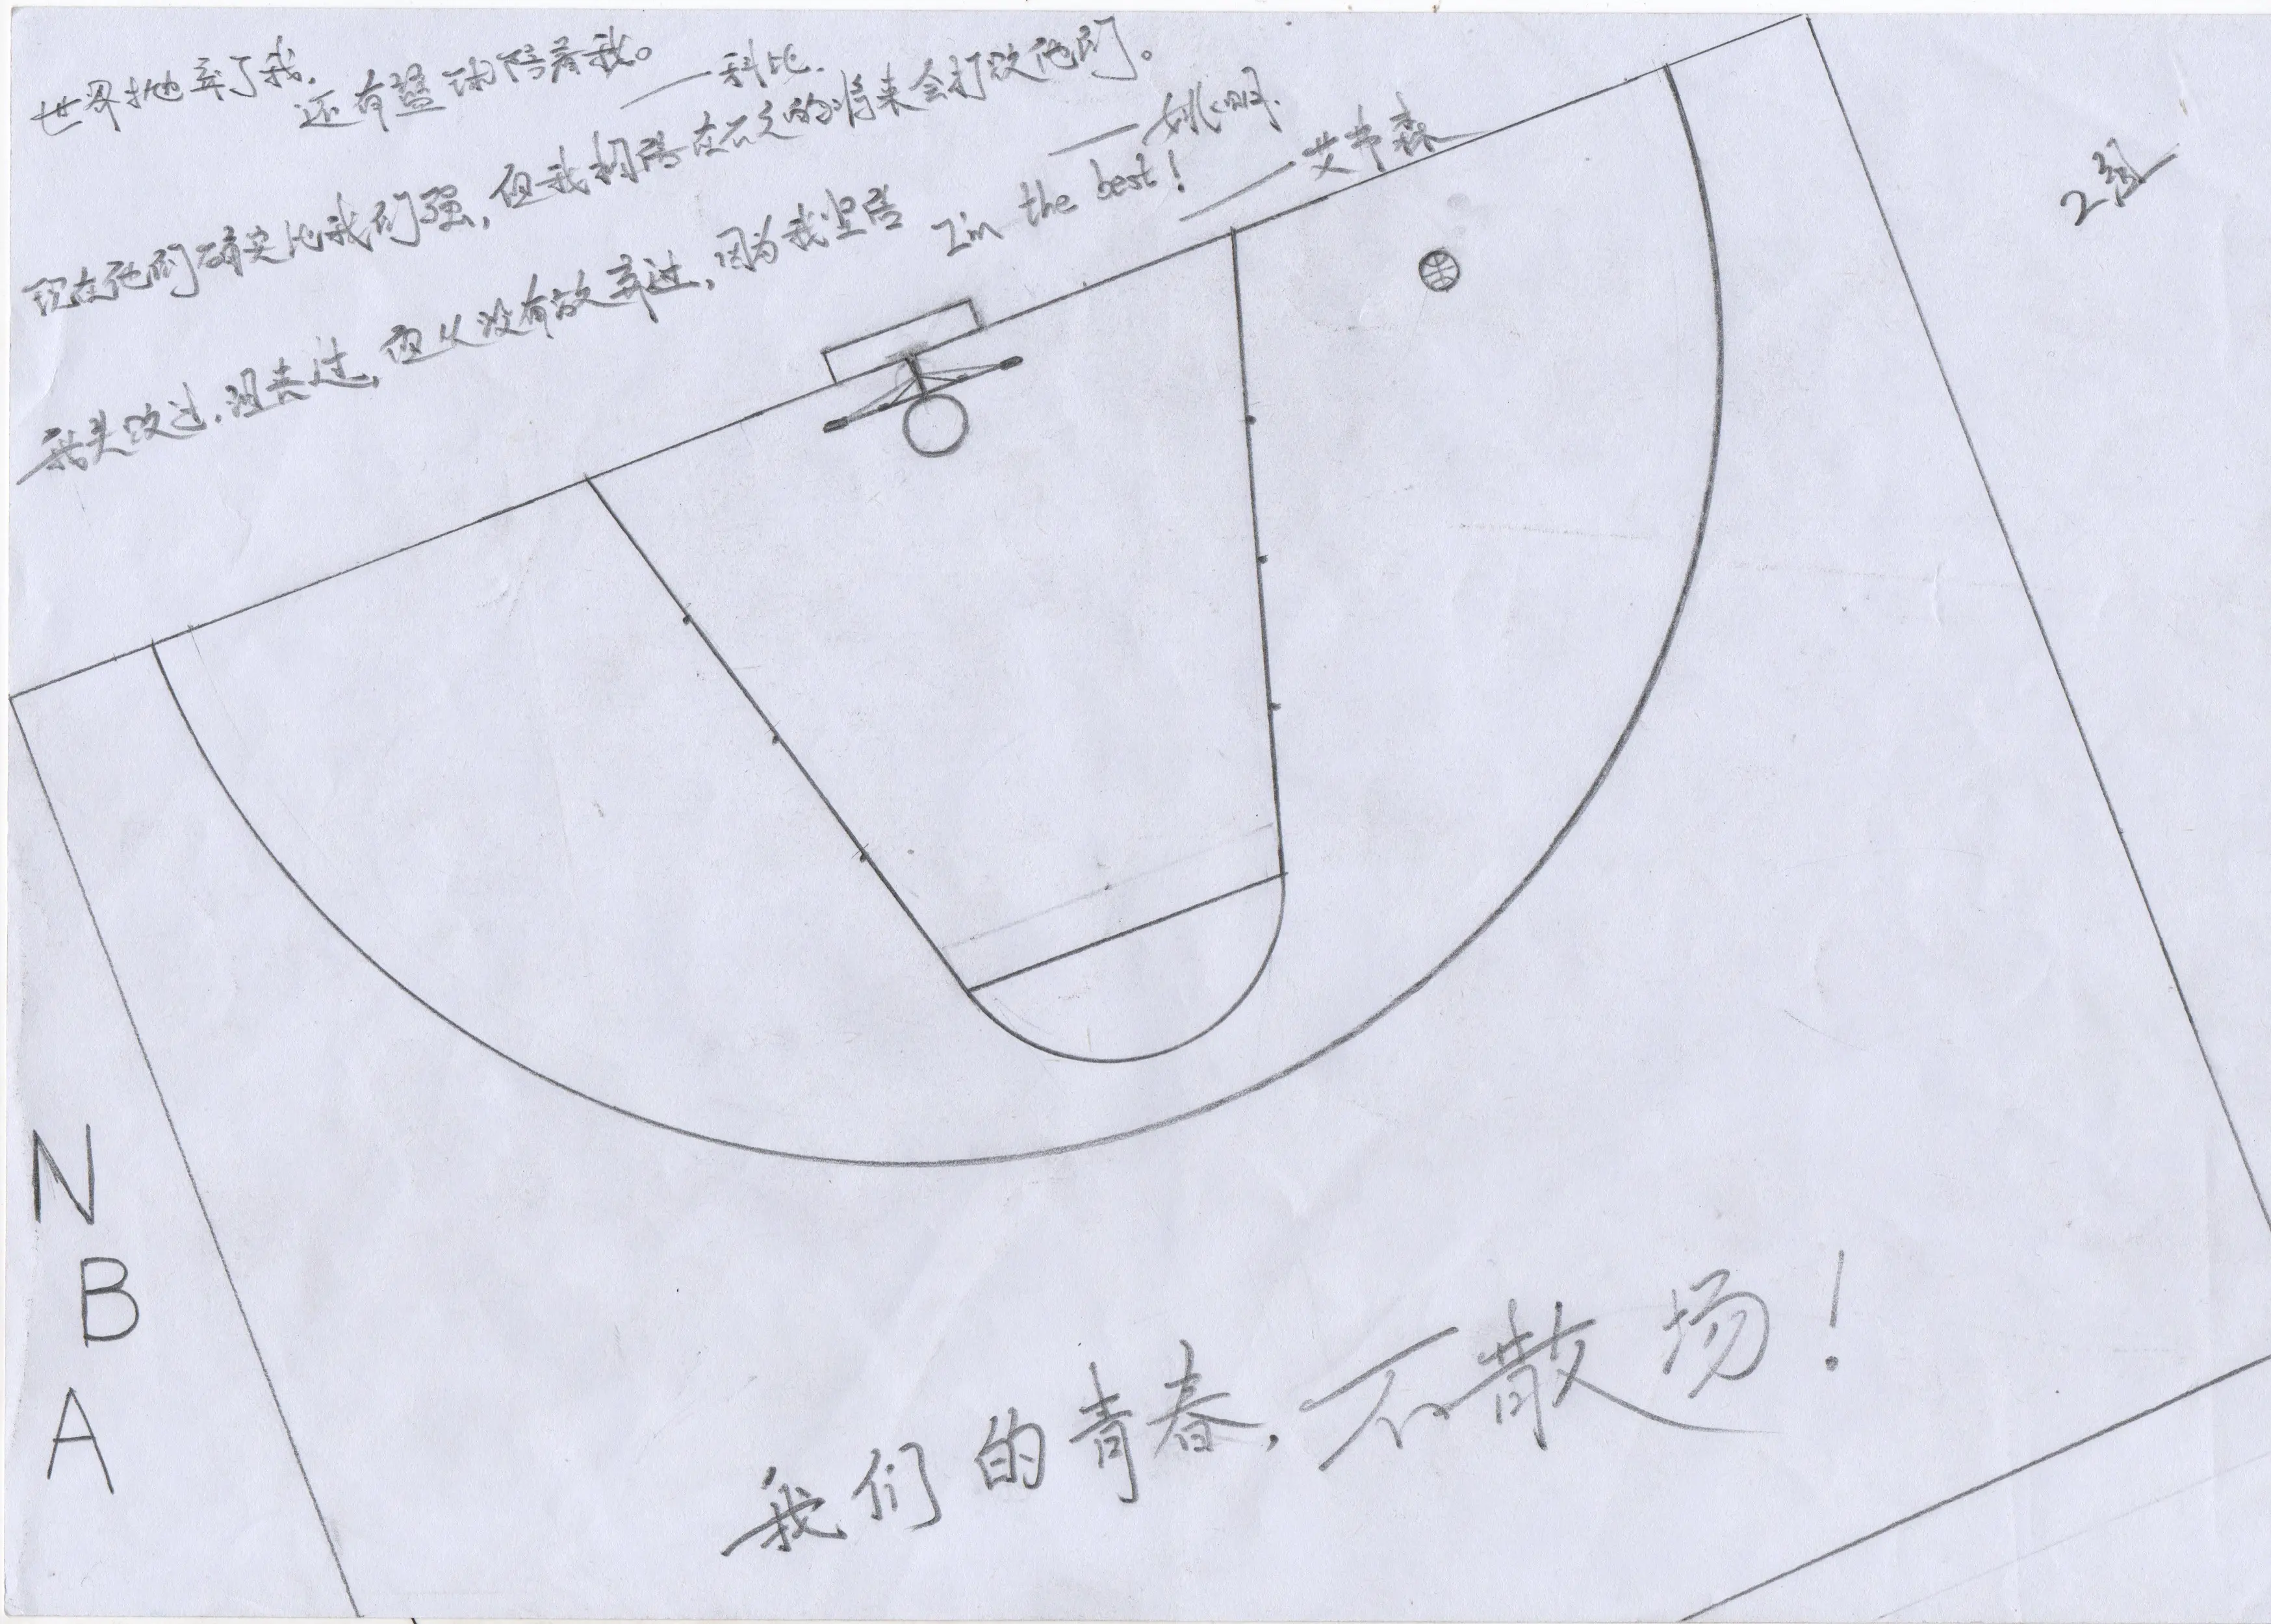 世界抛弃了我.
还有蓝球陪着我。
——科比.
现在他们确实比我们强,但我相信在不久的将来会打败他们。
——姚明.
我失败过.沮丧过,但从没有放弃过,因为我坚信 I'm the best!
——艾弗森
2组
N
B
A
我们的青春,不散场!